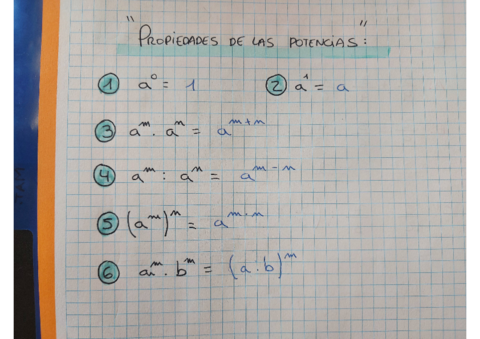 "PROPIEDADES DE LAS POTENCIAS:"
① a⁰ = 1 ② a¹ = a
③ aᵐ · aⁿ = aᵐ⁺ⁿ
④ aᵐ : aⁿ = aᵐ⁻ⁿ
⑤ (aᵐ)ⁿ = aᵐ·ⁿ
⑥ aᵐ · bᵐ = (a·b)ᵐ